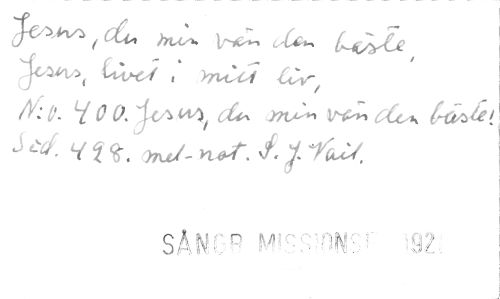 Jesus, du min vän den bäste,
Jesus, livet i mitt liv,
N:o. 400. Jesus, du min vän den bäste!
Sid. 498. mel-not. S. J. Vail.
SÅNGR MISSIONSF 192